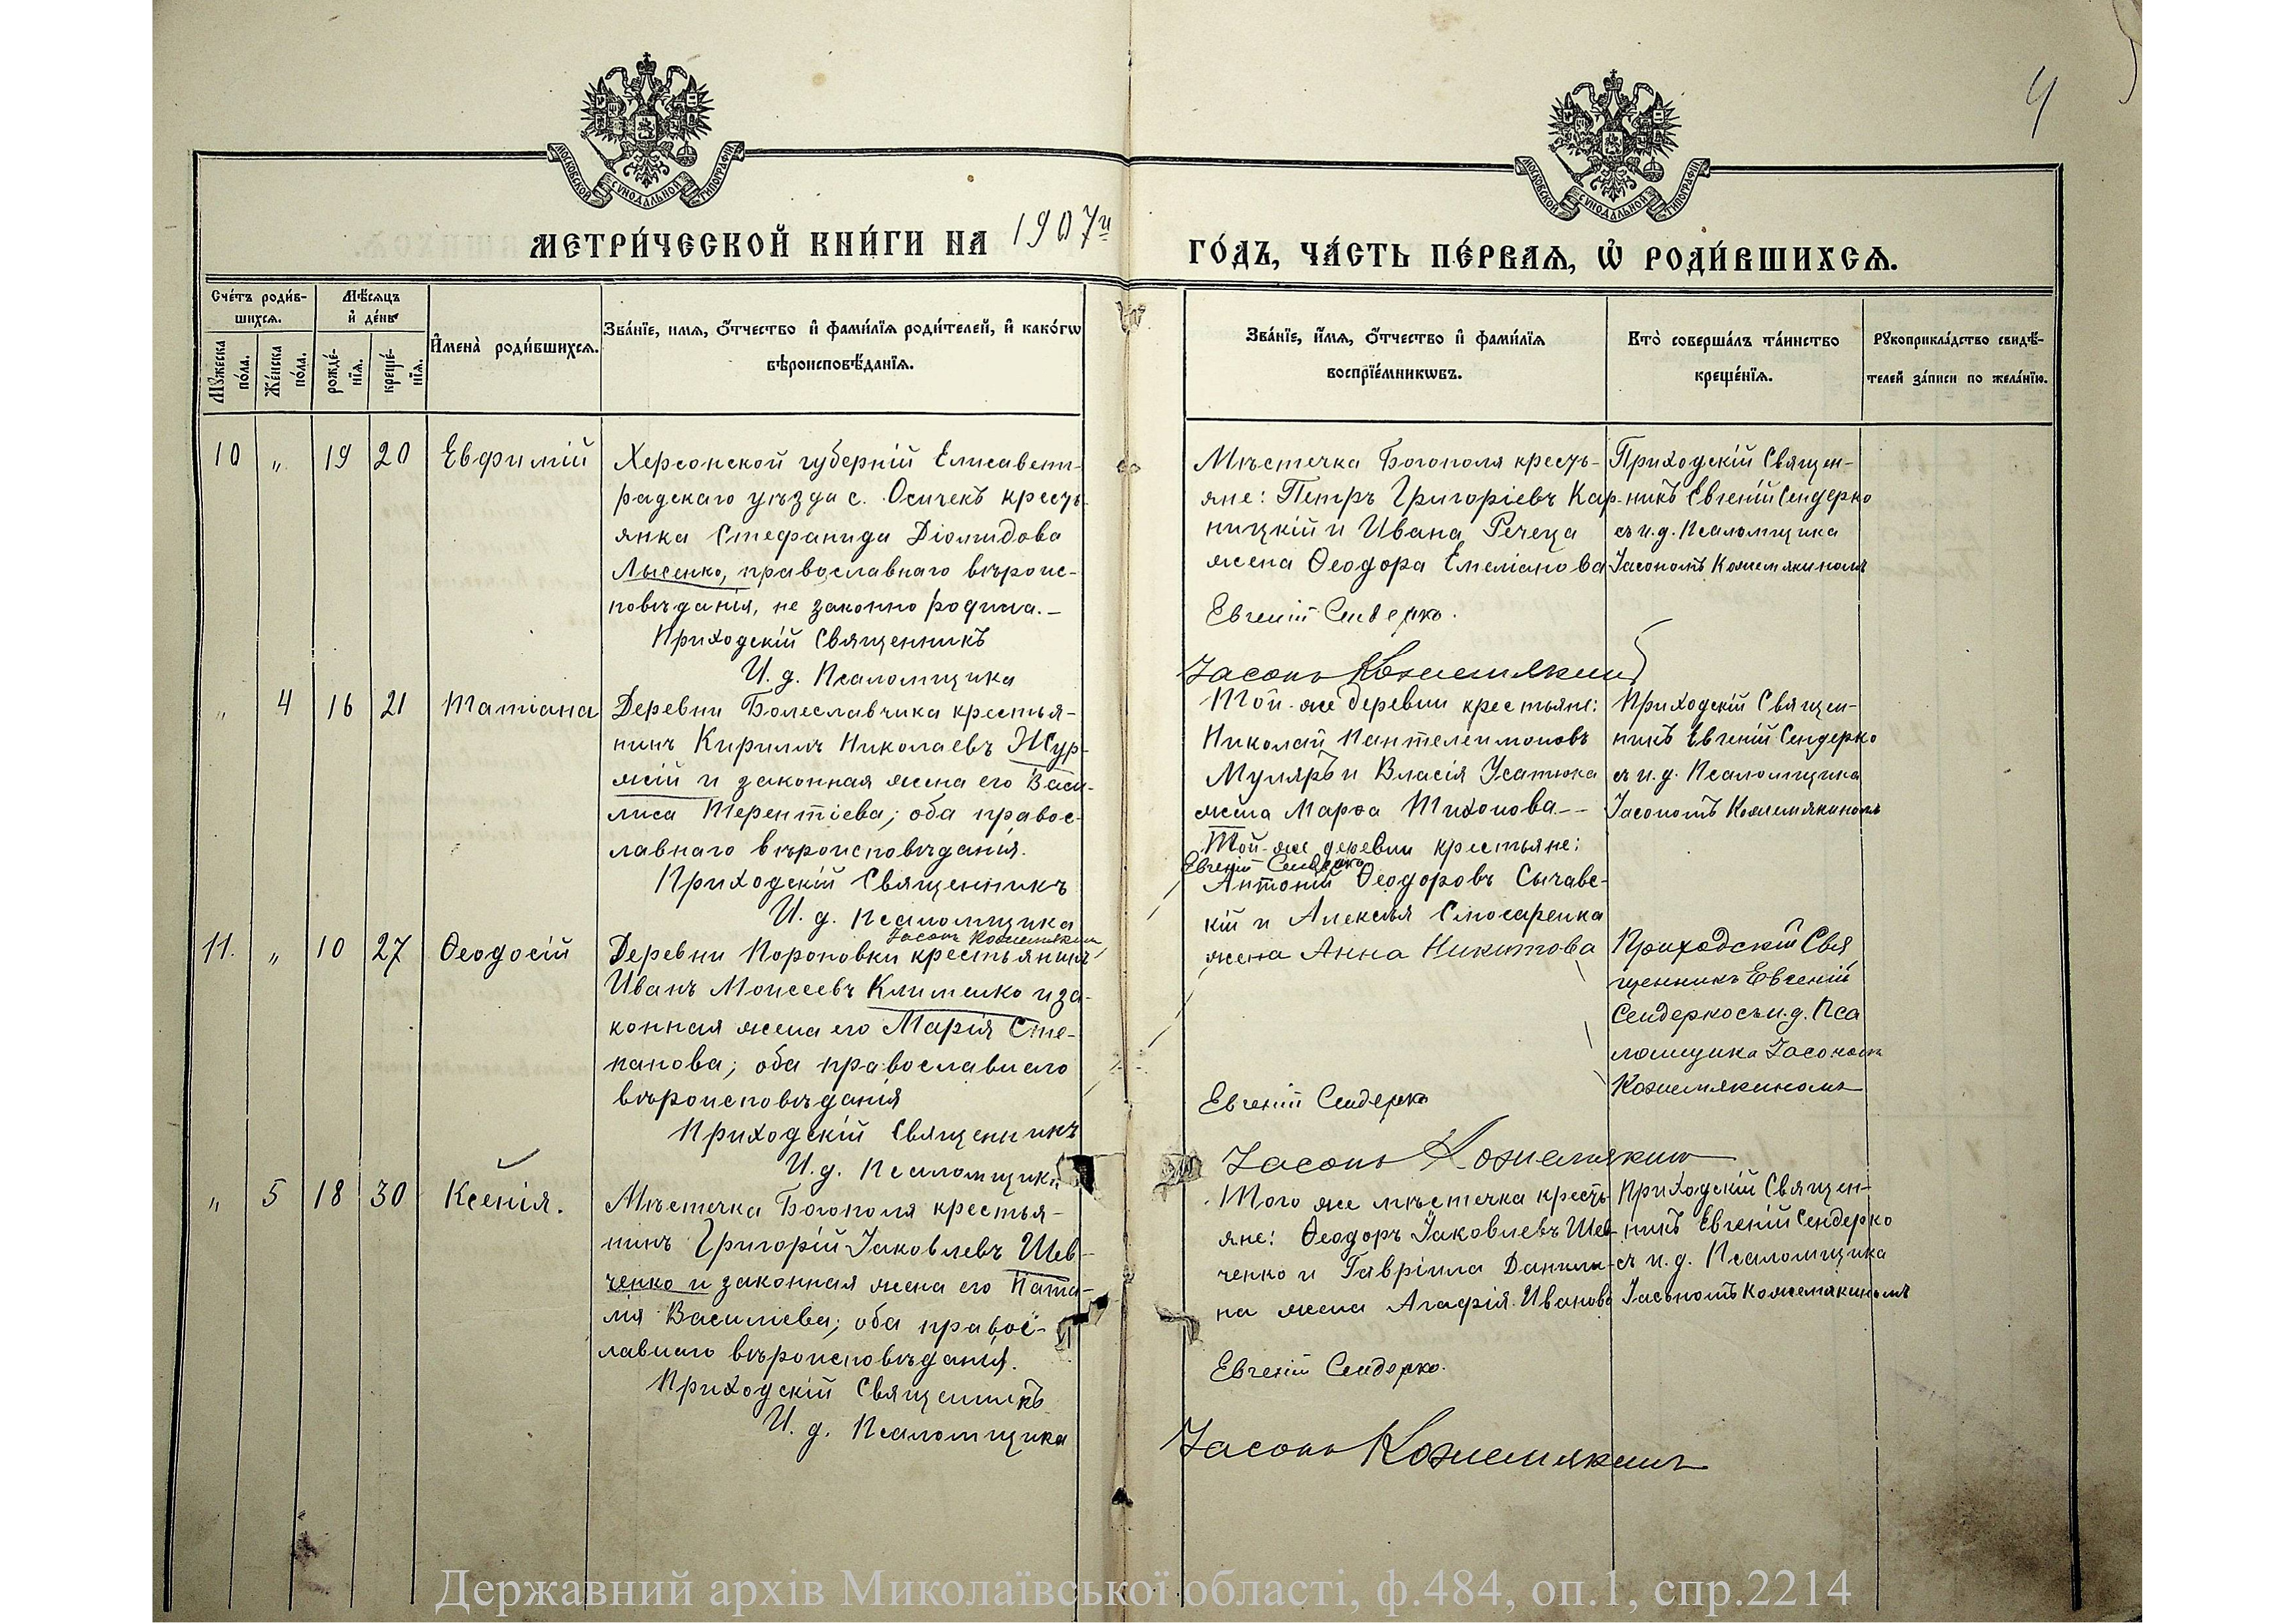 4
МОСКОВСКОЙ СѴНОДАЛЬНОЙ ТИПОГРАФІИ
МОСКОВСКОЙ СѴНОДАЛЬНОЙ ТИПОГРАФІИ
МЕТРИ́ЧЕСКОЙ КНИ́ГИ НА 1907й
ГО́ДЪ, ЧА́СТЬ ПЕ́РВАѦ, Ѡ҆ РОДИ́ВШИХСѦ.
Сче́тъ роди́в-
шихсѧ.
Мѣ́сѧцъ
и҆ де́нь
Мꙋ́жеска по́ла.
Же́нска по́ла.
рожде́-
нїѧ.
креще́-
нїѧ.
И҆мена̀ роди́вшихсѧ.
Зва́нїе, имѧ, ѻ҆́тчество и҆ фами́лїѧ роди́телей, и҆ како́гѡ
вѣроисповѣ́данїѧ.
Зва́нїе, и҆́мѧ, ѻ҆́тчество и҆ фами́лїѧ
воспрїе́мникѡвъ.
Кто̀ соверша́лъ та́инство
креще́нїѧ.
Рꙋкоприкла́дство свидѣ́-
телей за́писи по жела́нїю.
10 " 19 20 Евфимій
Херсонской губерній Елисавет-
радскаго уѣзда с. Осичекъ кресть-
янка Стефанида Діомидова
Лысенко, православнаго вѣроис-
повѣданія, не законно родила. –
Приходскій Священникъ
И. д. Псаломщика
Мѣстечка Богополя кресть-
яне: Петръ Григоріевъ Кар-
ницкій и Ивана Речеца
жена Ѳеодора Емеліанова
Евгеній Сендерко.
Іасонъ Кожемякинъ
Приходскій Священ-
никъ Евгеній Сендерко
съ и. д. Псаломщика
Іасономъ Кожемякиномъ
" 4 16 21 Татіана
Деревни Болеславчика крестья-
нинъ Кириллъ Николаевъ Жур-
жій и законная жена его Васи-
лиса Терентіева; оба правос-
лавнаго вѣроисповѣданія.
Приходскій Священникъ
И. д. Псаломщика
Іасонъ Кожемякинъ
Той-же деревни крестьяне:
Николай Пантелеимоновъ
Муляръ и Власія Усатюка
жена Марѳа Тихонова. --
Приходскій Священ-
никъ Евгеній Сендерко
съ и. д. Псаломщика
Іасономъ Кожемякиномъ
11. " 10 27 Ѳеодосій
Деревни Короновки крестьянинъ
Иванъ Моисеевъ Клименко и за-
конная жена его Марія Сте-
панова; оба православнаго
вѣроисповѣданія
Приходскій Священникъ
И. д. Псаломщика
Той-же деревни крестьяне:
Евгеній Сендерко
Антоній Ѳеодоровъ Сычавс-
кій и Алексѣя Слюсаренка
жена Анна Никитова
Евгеній Сендерко
Іасонъ Кожемякинъ
Приходскій Свя
щенникъ Евгеній
Сендерко съ и. д. Пса
ломщика Іасоном
Кожемякиномъ
" 5 18 30 Ксенія.
Мѣстечка Богополя крестья-
нинъ Григорій Іаковлевъ Шев-
ченко и законная жена его Ната-
лія Василіева; оба правос-
лавнаго вѣроисповѣданія.
Приходскій Священникъ
И. д. Псаломщика
Того же мѣстечка кресть-
яне: Ѳеодоръ Іаковлевъ Шев-
ченко и Гавріила Данили-
на жена Агафія Иванова
Евгеній Сендерко.
Іасонъ Кожемякинъ
Приходскій Священ-
никъ Евгеній Сендерко
съ и. д. Псаломщика
Іасономъ Кожемякиномъ
Державний архів Миколаївської області, ф.484, оп.1, спр.2214